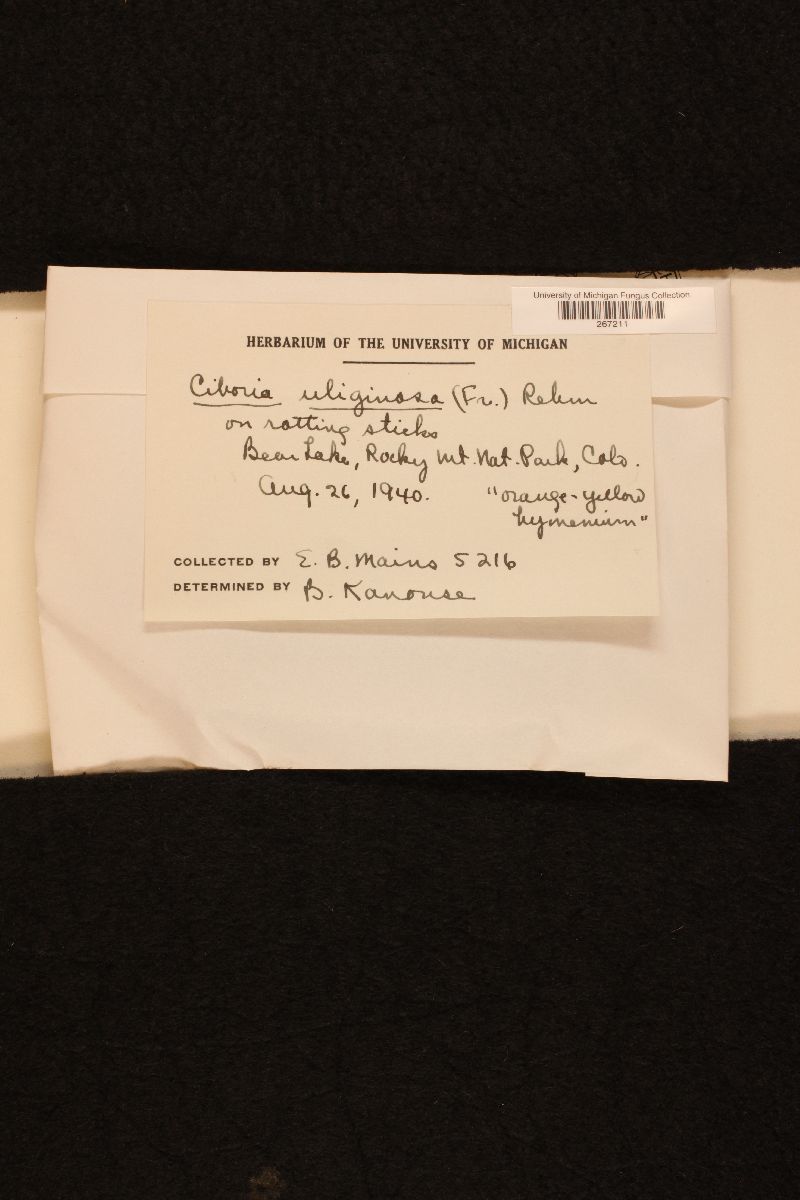 University of Michigan Fungus Collection
267211
HERBARIUM OF THE UNIVERSITY OF MICHIGAN
Ciboria uliginosa (Fr.) Rehm
on rotting sticks
Bear Lake, Rocky Mt. Nat. Park, Colo.
Aug. 26, 1940. "orange-yellow
hymenium"
COLLECTED BY E. B. Mains 5216
DETERMINED BY B. Kanouse